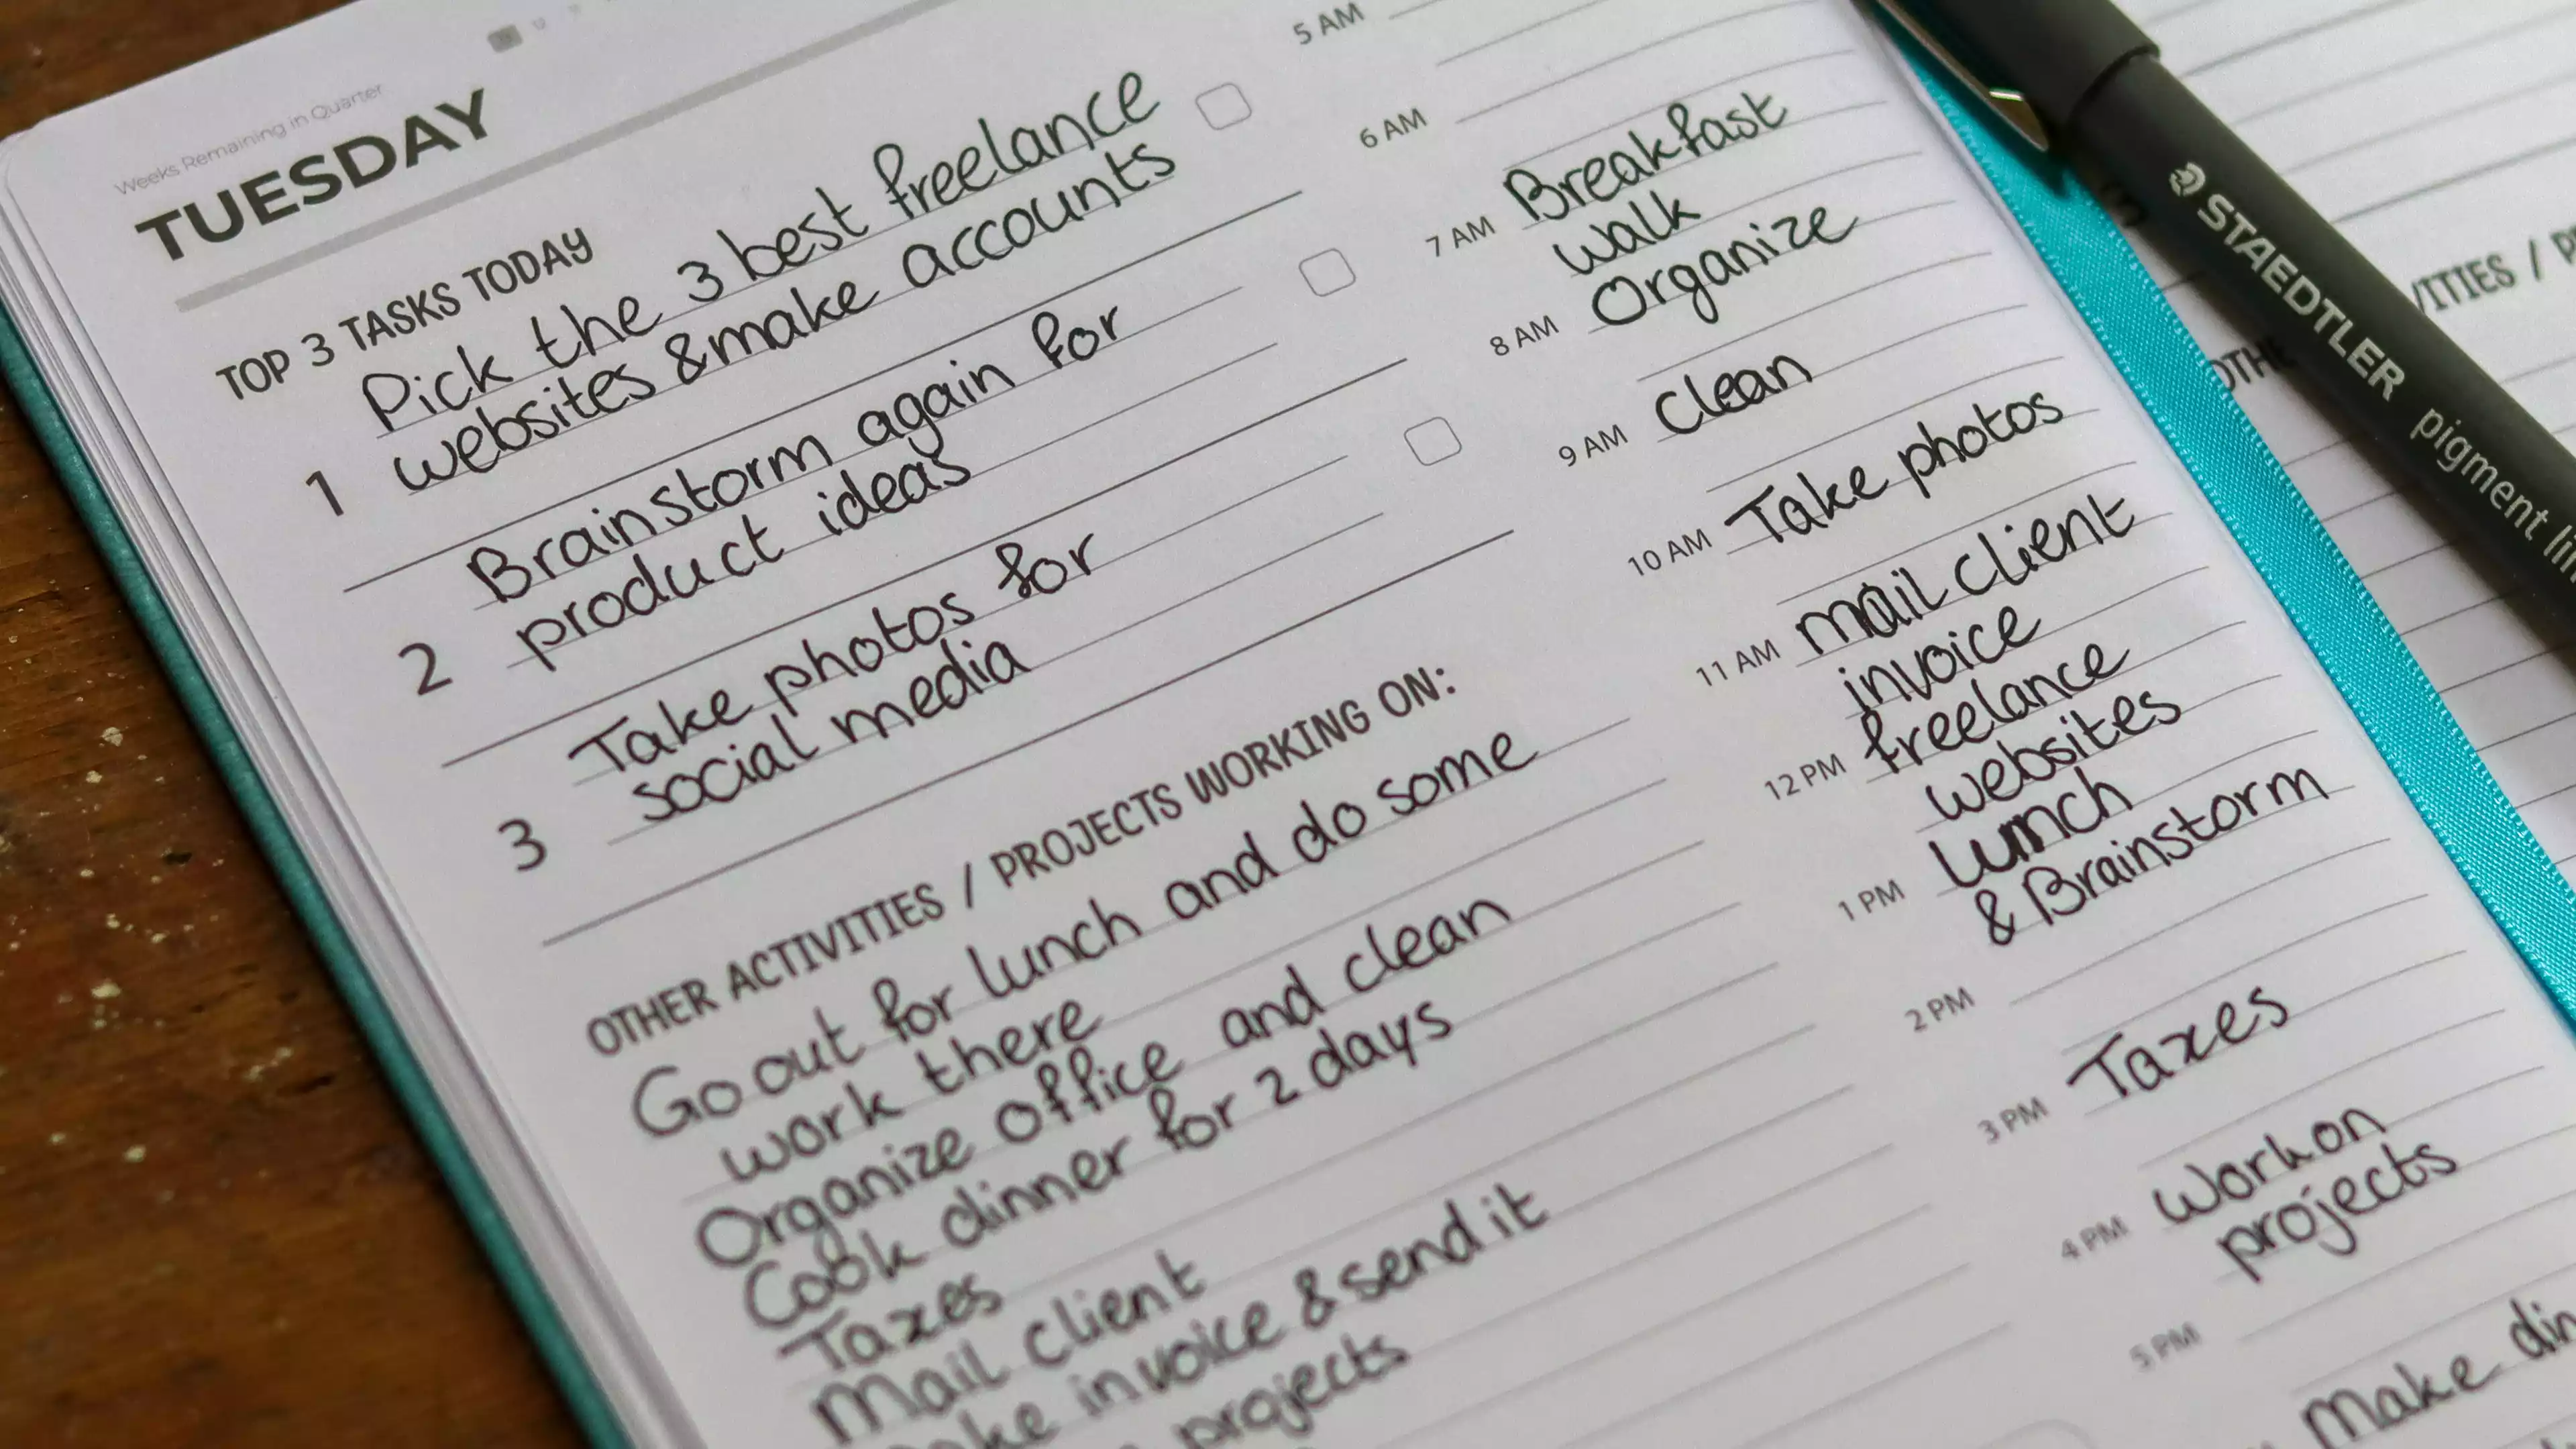 Weeks Remaining in Quarter
TUESDAY
TOP 3 TASKS TODAY
Pick the 3 best freelance
1 websites & make accounts
Brainstorm again for
2 product ideas
Take photos for
3 social media
OTHER ACTIVITIES / PROJECTS WORKING ON:
Go out for lunch and do some
work there
Organize office and clean
Cook dinner for 2 days
Taxes
Mail client
invoice & send it
projects
5 AM
6 AM
Breakfast
7 AM
walk
Organize
8 AM
Clean
9 AM
Take photos
10 AM
mail client
11 AM
invoice
freelance
12 PM
websites
lunch
1 PM
& Brainstorm
2 PM
Taxes
3 PM
Work on
4 PM
projects
5 PM
Make
STAEDTLER pigment